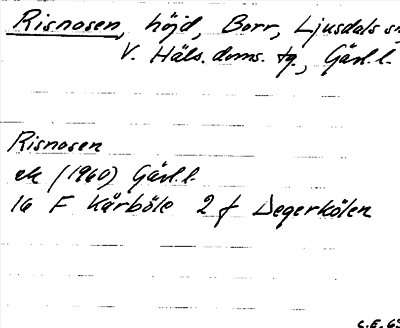 Risnosen, höjd, Borr, Ljusdals sn
V. Häls. doms. tg., Gävl. l.
Risnosen
ek (1960) Gävl. l.
16 F Kårböle 2 f Degerkölen
C.E. 65